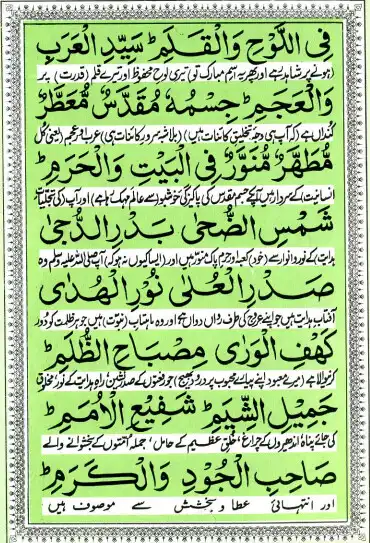 فِی اللَّوْحِ وَالْقَلَمِؕ سَیِّدِ الْعَرَبِ
ہونے پر شاہد ہے اور پھر یہ اسم مبارک تو تیری لوح محفوظ اور تیرے قلم (قدرت) پر
وَالْعَجَمِؕ جِسْمُہٗ مُقَدَّسٌ مُّعَطَّرٌ
کندہ ہے کہ آپ ہی وجہ تخلیق کائنات ہیں (بلاشبہ سرور کائنات ہی) عرب و عجم (یعنی کل
مُّطَہَّرٌ مُّنَوَّرٌ فِی الْبَیْتِ وَالْحَرَمِؕ
انسانیت کے سردار ہیں آپکے جسم مقدس کی پاکیزگی خوشبو (سے عالم مہک رہا ہے) اور آپ کی تجلیات
شَمْسِ الضُّحٰی بَدْرِ الدُّجٰی
ہدایت کے نور و انوار سے (خود) کعبہ و حرم پاک منور ہیں اور (ایسا کیوں نہ ہو کہ) آپ صلی اللہ علیہ وسلم وہ
صَدْرِ الْعُلٰی نُوْرِ الْہُدٰی
آفتاب ہدایت ہیں جو اپنے عروج کی طرف رواں دواں ہے اور وہ ماہتاب (نبوت) ہیں جو ہر ظلمت کو دور
کَہْفِ الْوَرٰی مِصْبَاحِ الظُّلَمِؕ
کرنیوالا ہے (میرے معبود اپنے پیارے محبوب پر درود بھیج) جو رفعتوں کے صدر نشین راہ ہدایت کے نور مخلوق
جَمِیْلِ الشِّیَمِؕ شَفِیْعِ الْاُمَمِؕ
کی جائے پناہ اندھیروں کے چراغ، خلق عظیم کے حامل، جملہ امتوں کے بخشوانے والے
صَاحِبِ الْجُوْدِ وَالْکَرَمِؕ
اور انتہائی عطا و بخشش سے موصوف ہیں